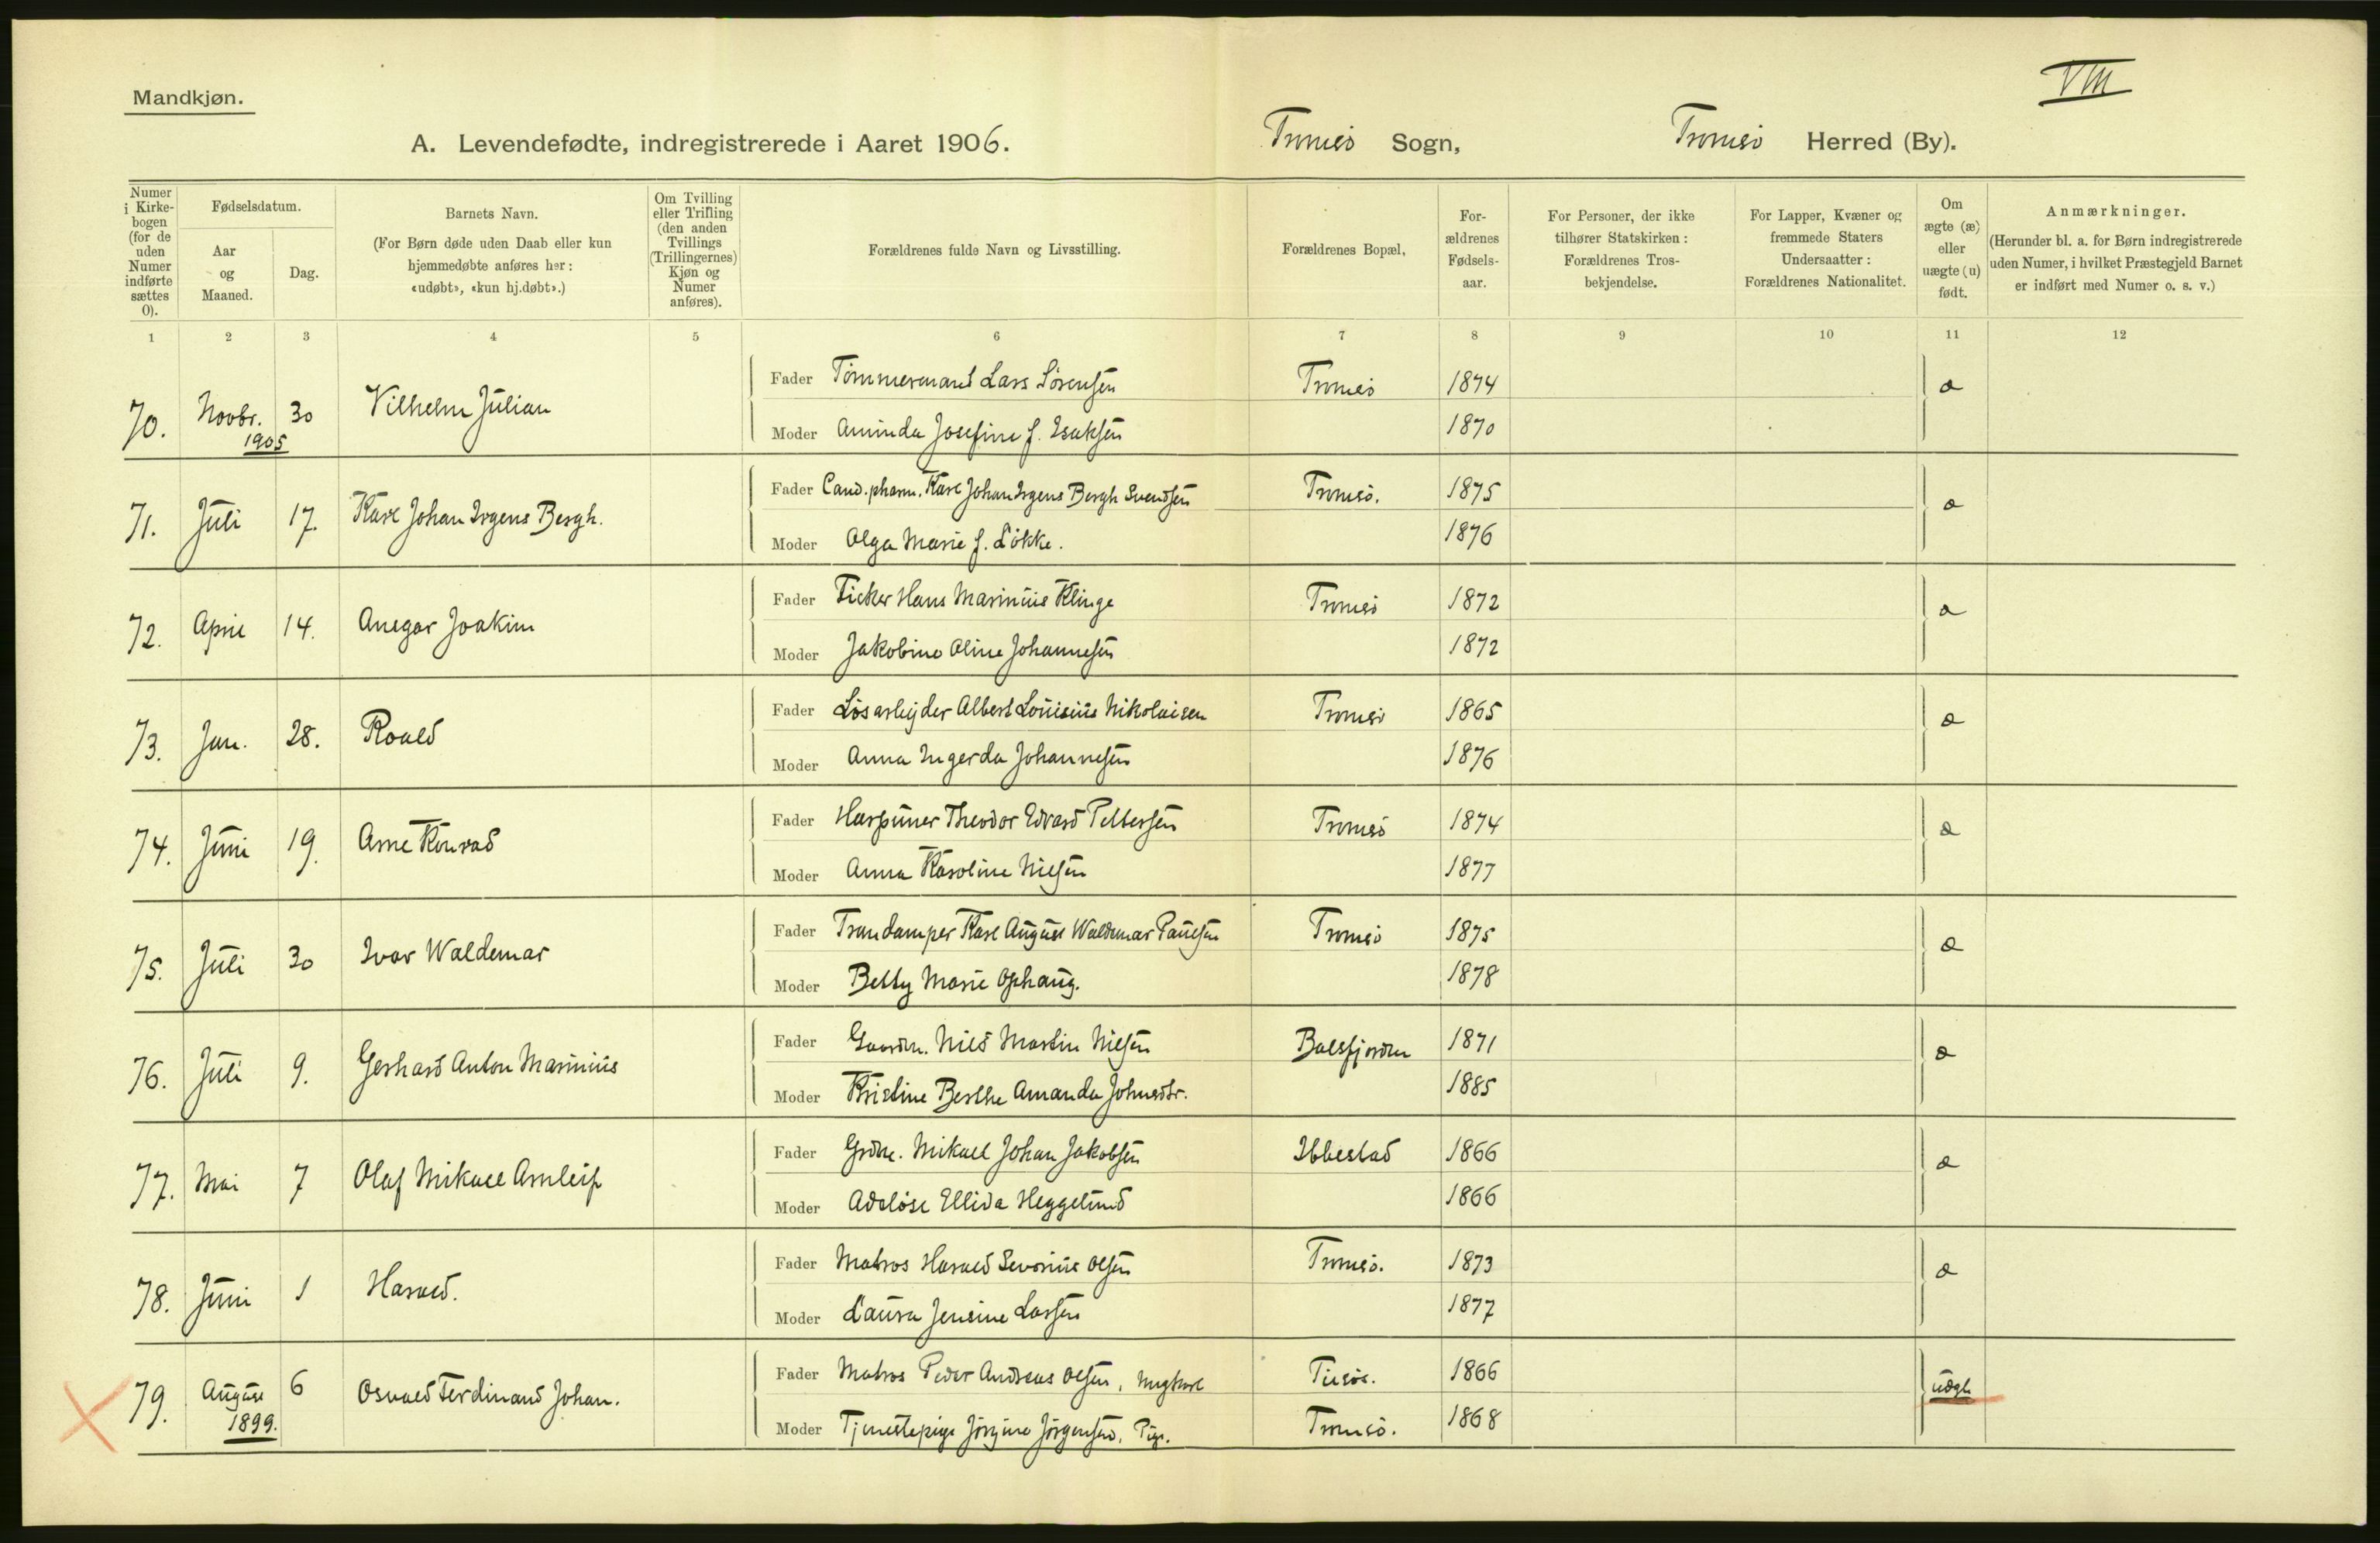 VIII
Mandkjøn.
A. Levendefødte, indregistrerede i Aaret 1906. Tromsø Sogn, Tromsø Herred (By).
Numer i Kirke-bogen (for de uden Numer indførte sættes 0).
Fødselsdatum.
Aar og Maaned.
Dag.
Barnets Navn.
(For Børn døde uden Daab eller kun hjemmedøbte anføres her: «udøbt», «kun hj.døbt».)
Om Tvilling eller Trilling (den anden Tvillings (Trillingernes) Kjøn og Numer anføres).
Forældrenes fulde Navn og Livsstilling.
Forældrenes Bopæl,
For-ældrenes Fødsels-aar.
For Personer, der ikke tilhører Statskirken: Forældrenes Tros-bekjendelse.
For Lapper, Kvæner og fremmede Staters Undersaatter: Forældrenes Nationalitet.
Om ægte (æ) eller uægte (u) født.
Anmærkninger.
(Herunder bl. a. for Børn indregistrerede uden Numer, i hvilket Præstegjeld Barnet er indført med Numer o. s. v.)
1 2 3 4 5 6 7 8 9 10 11 12
70. Novbr. 1905 30 Vilhelm Julian
Fader Tømmermand Lars Sörensen Tromsö 1874 æ
Moder Aminda Josefine f. Isaksen 1870
71. Juli 17. Karl Johan Irgens Bergh.
Fader Cand. pharm. Karl Johan Irgens Bergh Svendsen Tromsö. 1875 æ
Moder Olga Marie f. Lökke. 1876
72. April 14. Ansgar Joakim
Fader Fisker Hans Marinius Klinge Tromsö 1872 æ
Moder Jakobine Oline Johannesen 1872
73. Jan. 28. Roald
Fader Lösarbejder Albert Louisius Nikolaisen Tromsö 1865 æ
Moder Anna Ingerda Johannesen 1876
74. Juni 19. Arne Konrad
Fader Harpuner Theodor Edvard Pettersen Tromsö 1874 æ
Moder Anna Karoline Nielsen 1877
75. Juli 30 Ivar Waldemar
Fader Trandamper Karl August Waldemar Paulsen Tromsö 1875 æ
Moder Betty Marie Ophaug. 1878
76. Juli 9. Gerhard Anton Marinius
Fader Gaardm. Nils Martin Nilsen Balsfjorden 1871 æ
Moder Kristine Berthe Amanda Johnsdtr. 1885
77. Mai 7 Olaf Mikael Arnleif
Fader Grdm. Mikael Johan Jakobsen Ibbestad 1866 æ
Moder Adelöse Ellida Heggelund 1866
78. Juni 1 Harald.
Fader Matros Harald Severinus Olsen Tromsö. 1873 æ
Moder Laura Jensine Larsen 1877
79. August 1899. 6 Osvald Ferdinand Johan.
Fader Matros Peder Andreas Olsen, Ungkarl Tissös. 1866 uægt.
Moder Tjenestepige Jörgine Jörgensen, Pige. Tromsö. 1868